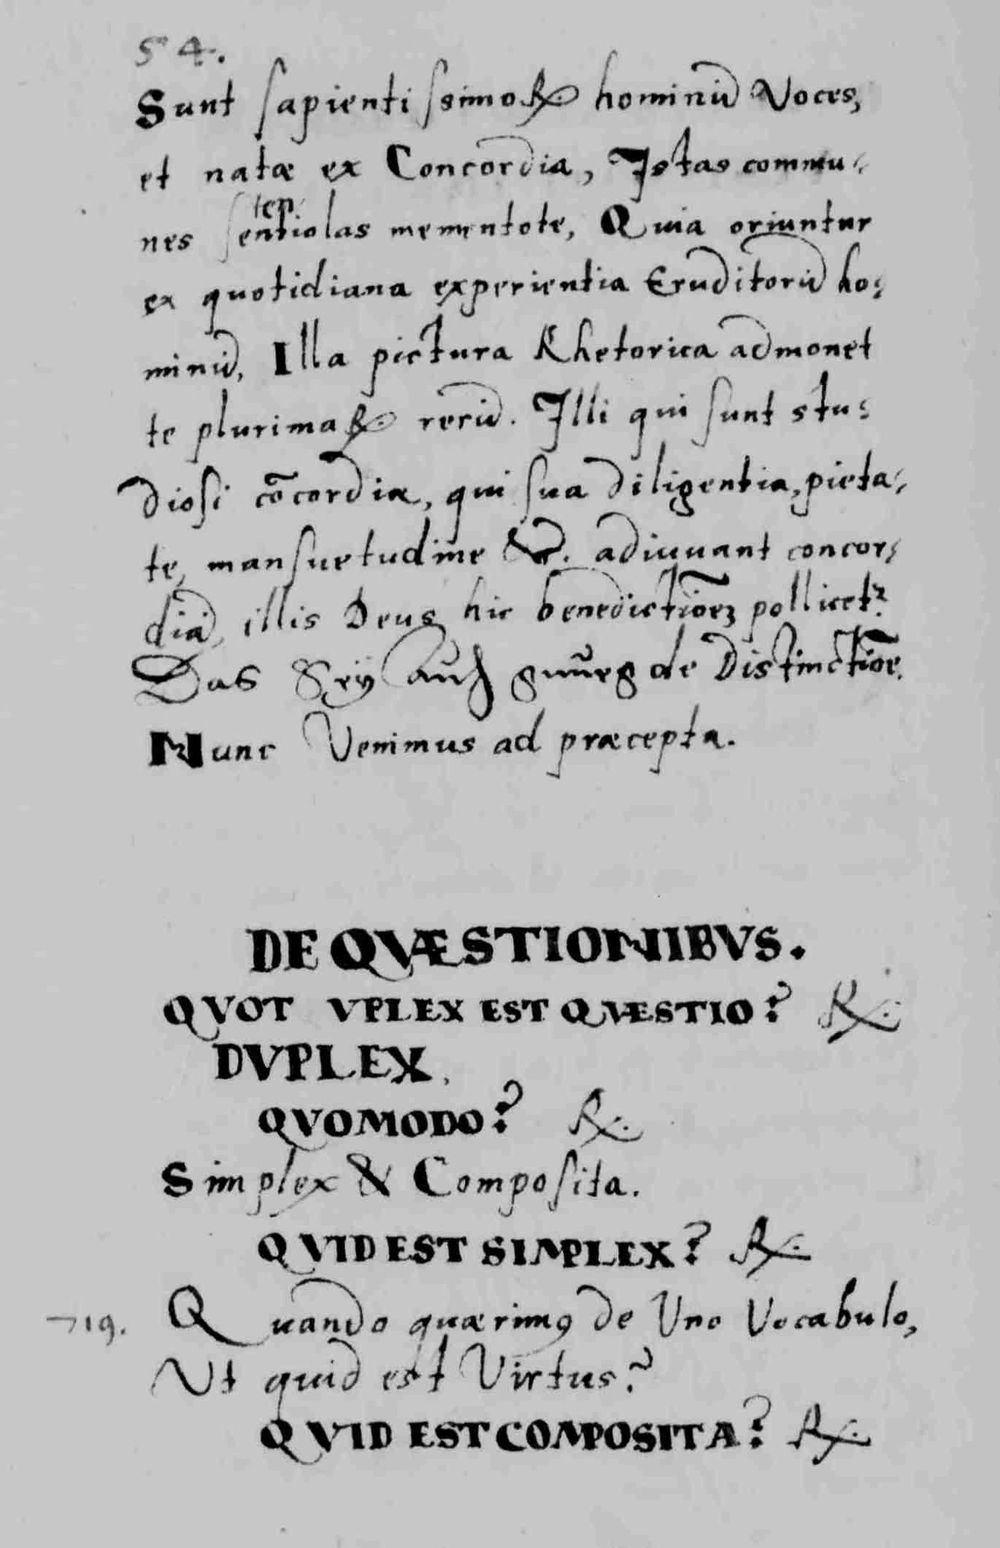 54.
Sunt sapientissimoꝝ hominũ Voces,
et natæ ex Concordia, Istas commu-
nes sententiolas mementote, Quia oriuntur
ex quotidiana experientia Eruditorũ ho-
minũ, Illa pictura Rhetorica admonet
te plurimaꝝ rerũ. Illi qui sunt stu-
diosi cõcordiæ, qui sua diligentia, pieta-
te, mansuetudine &c. adiuvant concor-
diã, illis Deus hic benedictiõeʒ pollicetꝛ
Das Seÿ auch gnueg de Distinctiõe.
Nunc Venimus ad præcepta.
DE QVÆSTIONIBVS.
QVOT VPLEX EST QVÆSTIO? ℞.
DVPLEX.
QVOMODO? ℞.
Simplex & Composita.
QVID EST SIMPLEX? ℞.
719. Quando quærimꝰ de Uno Vocabulo,
Ut quid est Virtus?
QVID EST COMPOSITA? ℞.